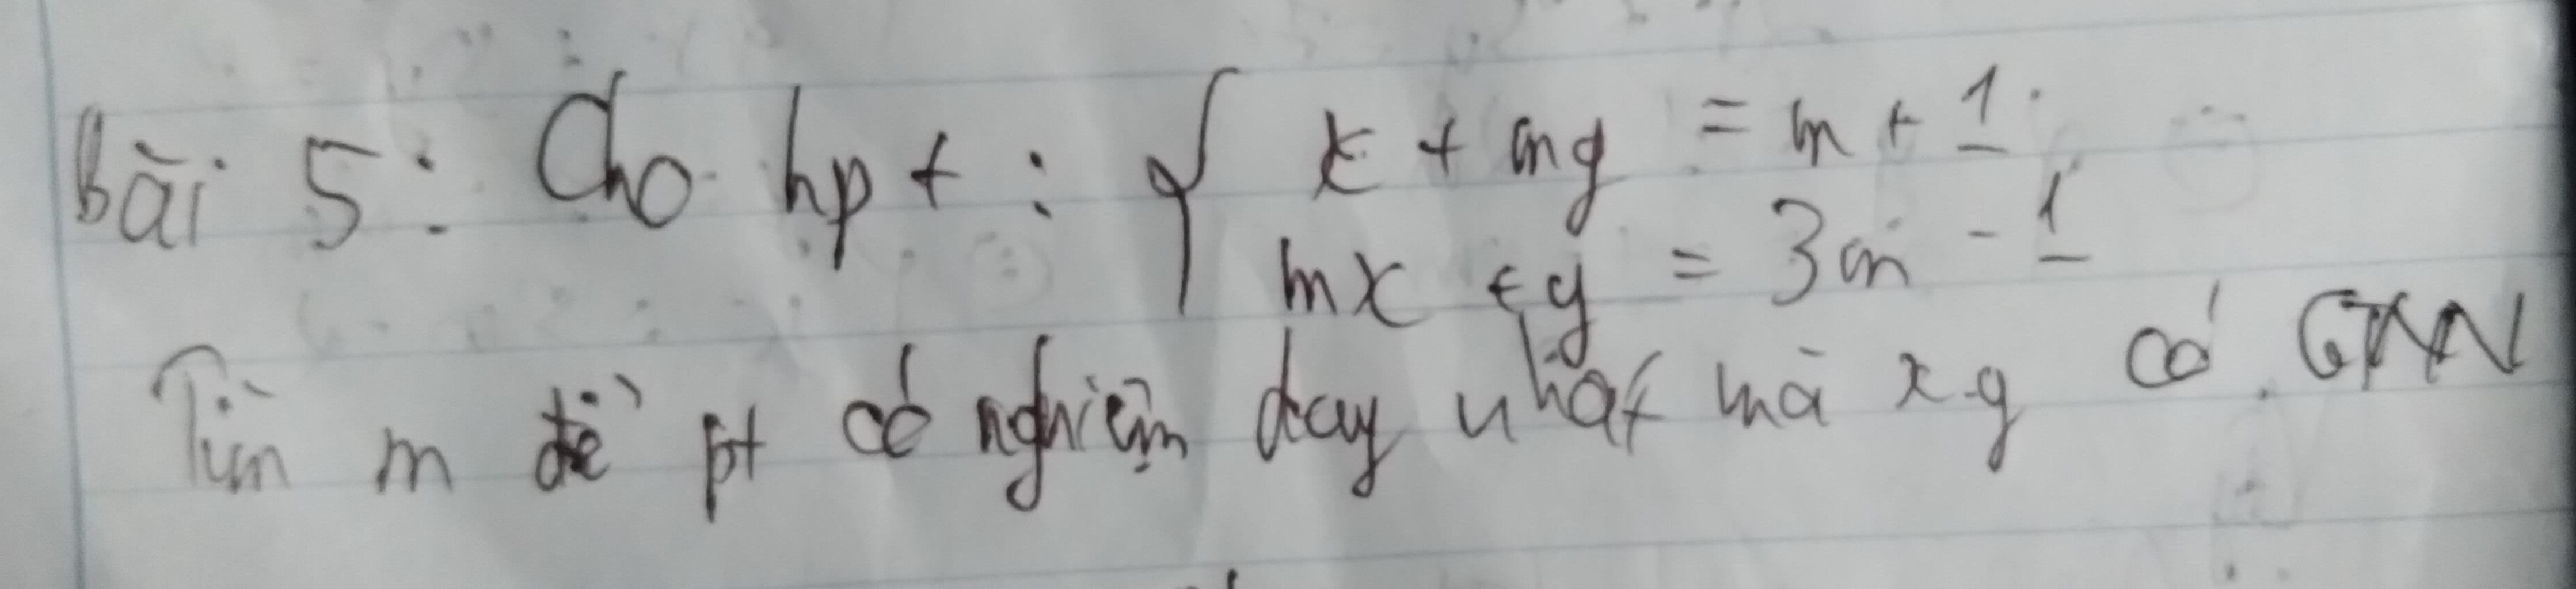 Bài 5: Cho hpt: { x + my = m + 1
mx + y = 3m - 1
Tìm m để pt có nghiệm duy nhất mà x.y có GTNN